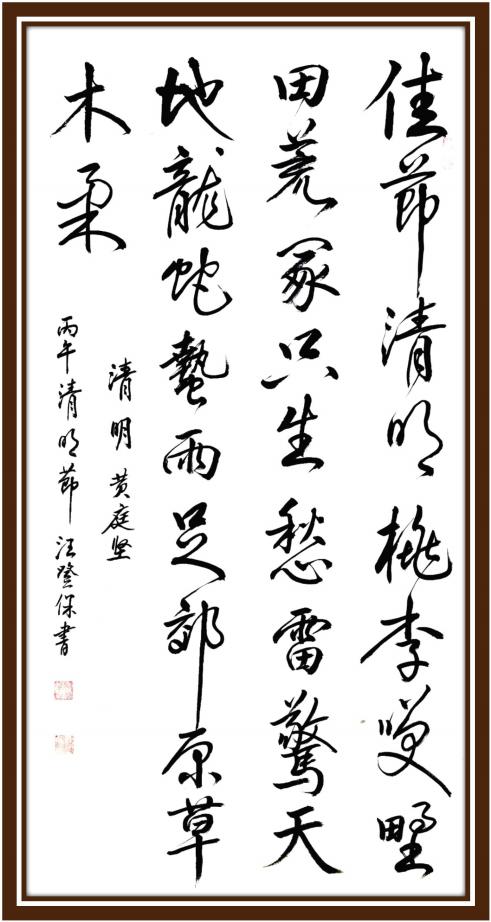 佳节清明桃李笑野
田荒冢只生愁雷驚天
地龍蛇蟄雨足郊原草
木柔
清明 黄庭坚
丙午清明节 汪登保書